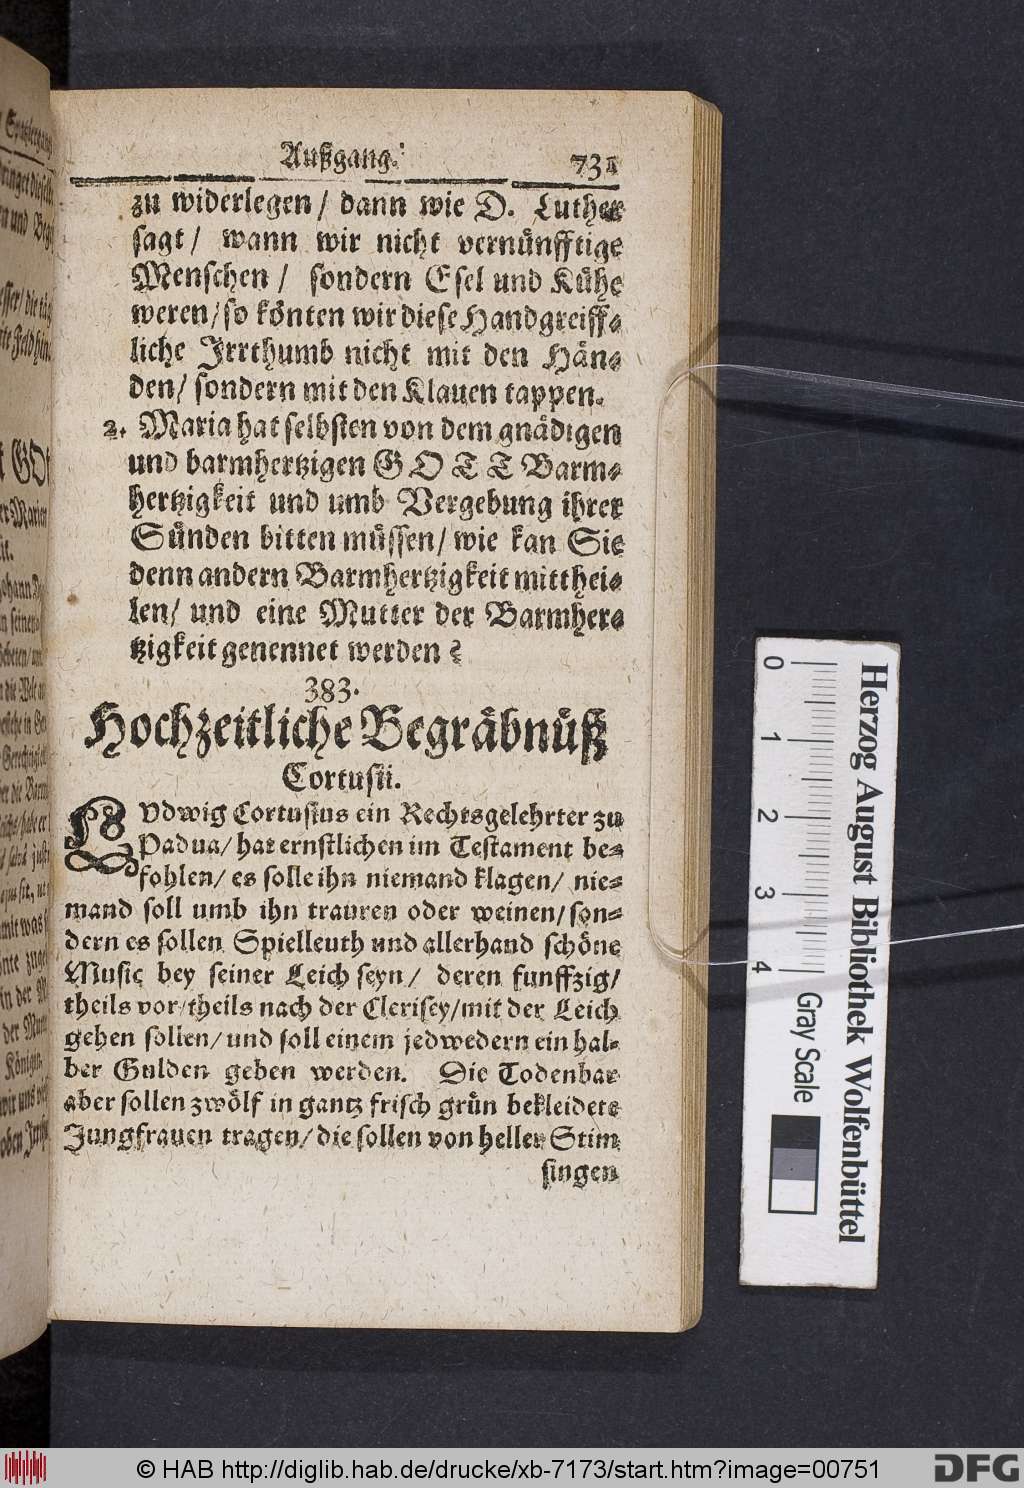 Außgang.
731
zu widerlegen / dann wie D. Luther
sagt / wann wir nicht vernünfftige
Menschen / sondern Esel und Kühe
weren / so könten wir diese Handgreiff-
liche Irrthumb nicht mit den Hän-
den / sondern mit den Klauen tappen.
2. Maria hat selbsten von dem gnädigen
und barmhertzigen GOTT Barm-
hertzigkeit und umb Vergebung ihrer
Sünden bitten müssen / wie kan Sie
denn andern Barmhertzigkeit mitthei-
len / und eine Mutter der Barmher-
tzigkeit genennet werden?
383.
Hochzeitliche Begräbnüß
Cortusii.
LVdwig Cortusius ein Rechtsgelehrter zu
Padua / hat ernstlichen im Testament be-
fohlen / es solle ihn niemand klagen / nie-
mand soll umb ihn trauren oder weinen / son-
dern es sollen Spielleuth und allerhand schöne
Music bey seiner Leich seyn / deren funffzig /
theils vor / theils nach der Clerisey / mit der Leich
gehen sollen / und soll einem jedwedern ein hal-
ber Gulden geben werden. Die Todenbar
aber sollen zwölf in gantz frisch grün bekleidete
Jungfrauen tragen / die sollen von heller Stim
singen
0 1 2 3 4
Gray Scale
Herzog August Bibliothek Wolfenbüttel
© HAB http://diglib.hab.de/drucke/xb-7173/start.htm?image=00751
DFG